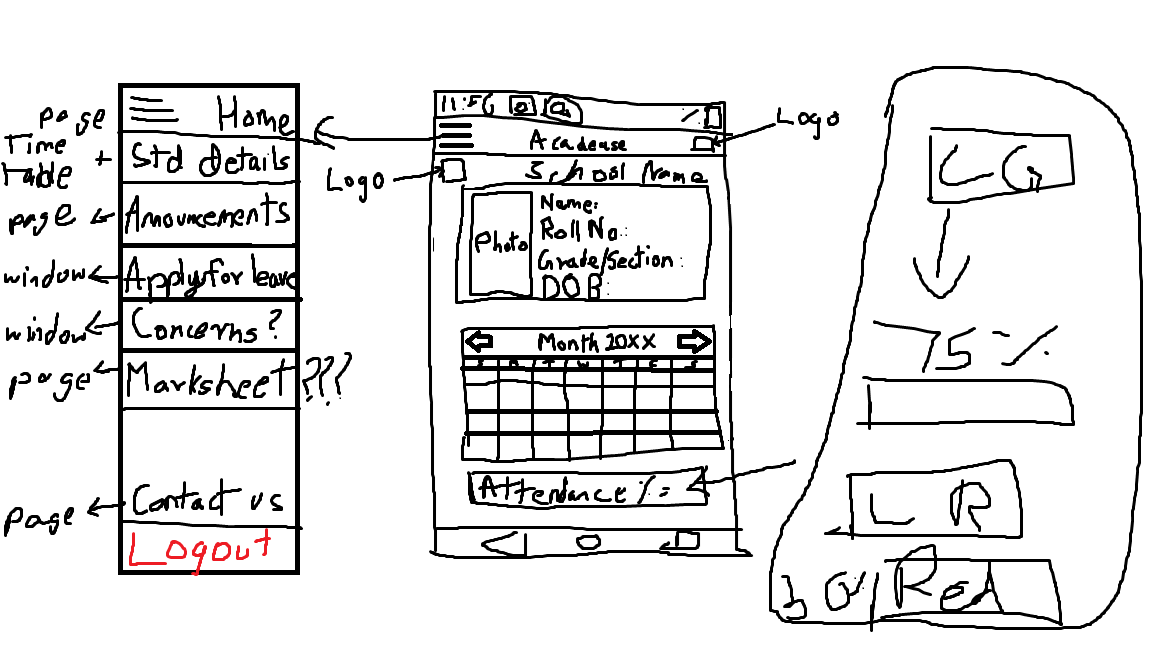 page
Time
table +
page
window
window
page
page
Home
Std details
Anouncements
Apply for leave
Concerns ?
Marksheet ???
Contact us
Logout
11:56
Acadease
Logo
Logo
School Name
Photo
Name:
Roll No.:
Grade/Section :
DOB:
Month 20XX
S M T W T F S
Attendance % =
LG
75 %
LR
Red